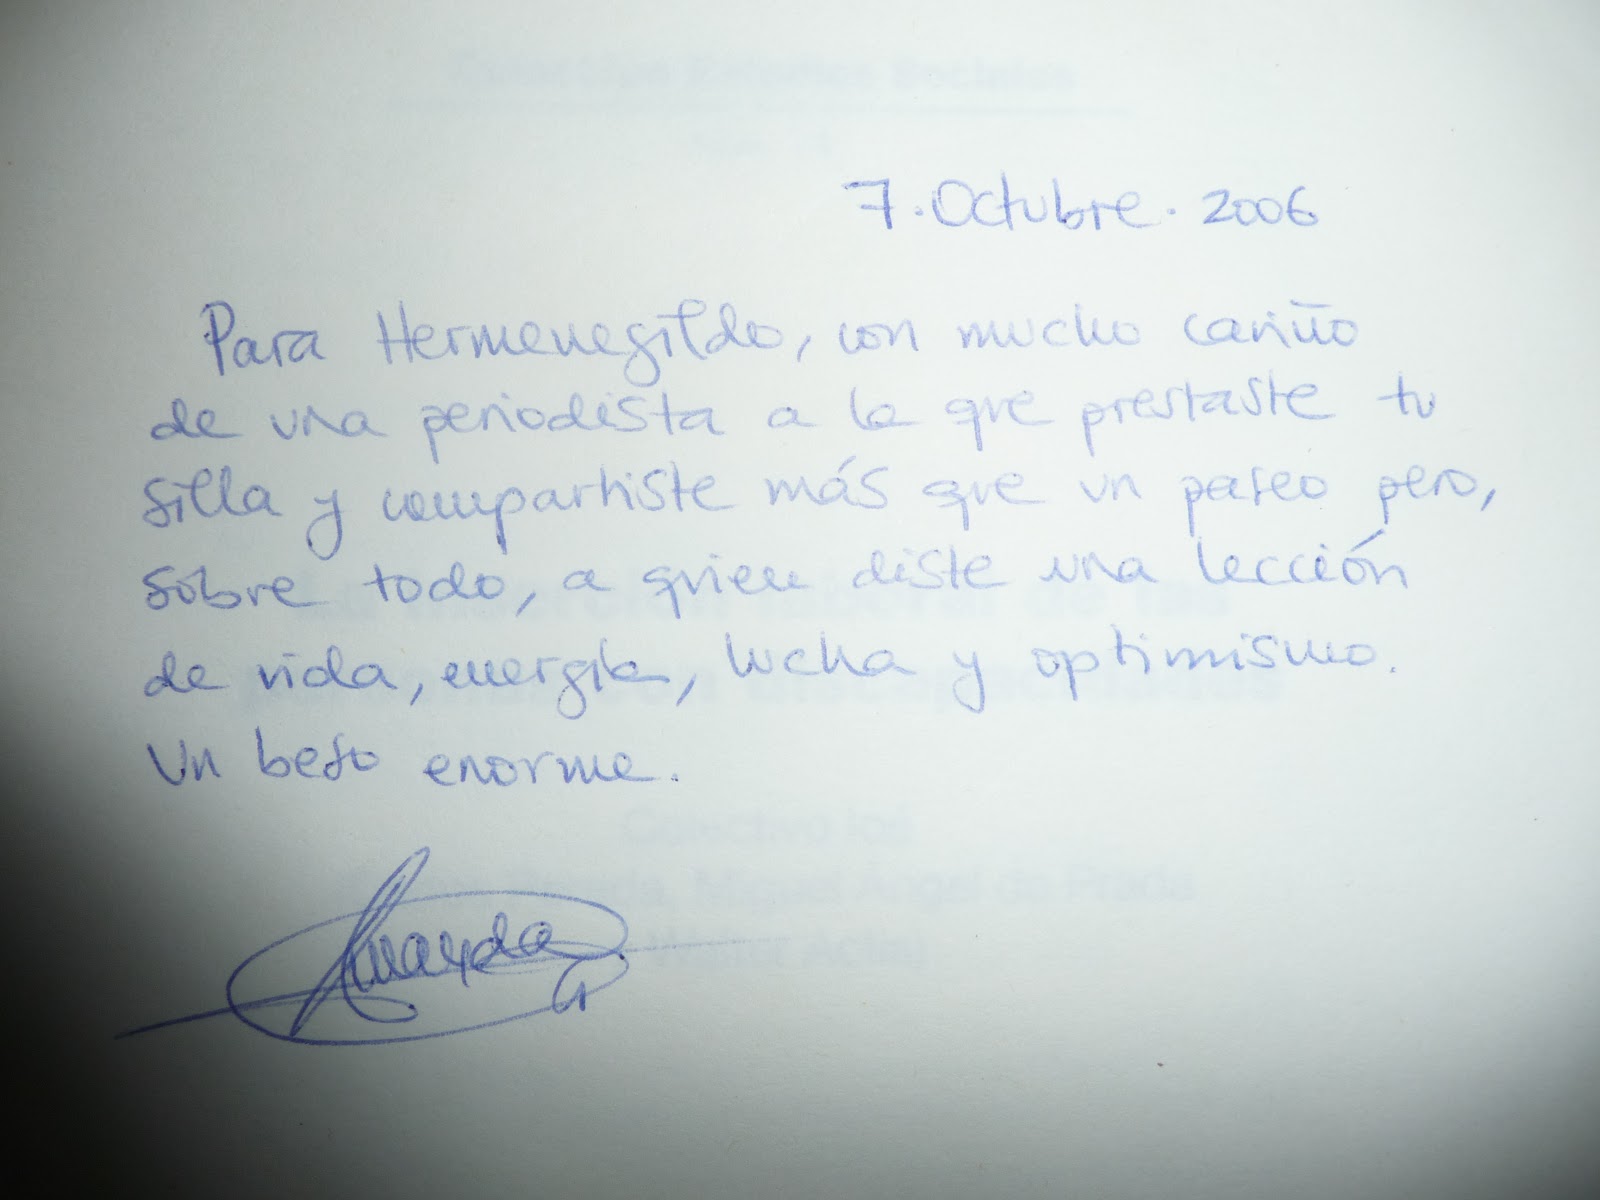 7. Octubre. 2006
Para Hermenegildo, con mucho cariño
de una periodista a la que prestaste tu
silla y compartiste más que un paseo pero,
sobre todo, a quien diste una lección
de vida, energía, lucha y optimismo.
Un beso enorme.
Amanda